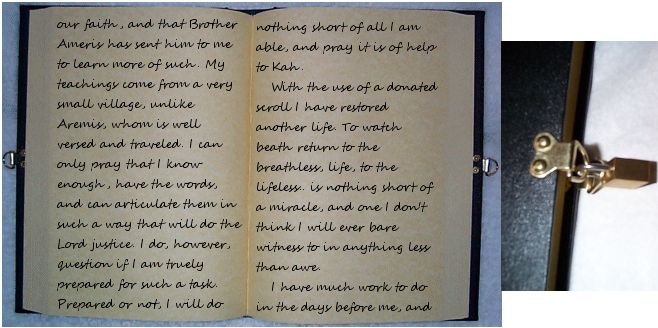 our faith, and that Brother
Ameris has sent him to me
to learn more of such. My
teachings come from a very
small village, unlike
Aremis, whom is well
versed and traveled. I can
only pray that I know
enough, have the words,
and can articulate them in
such a way that will do the
Lord justice. I do, however,
question if I am truely
prepared for such a task.
Prepared or not, I will do
nothing short of all I am
able, and pray it is of help
to Kah.
With the use of a donated
scroll I have restored
another life. To watch
beath return to the
breathless, life, to the
lifeless. is nothing short of
a miracle, and one I don't
think I will ever bare
witness to in anything less
than awe.
I have much work to do
in the days before me, and